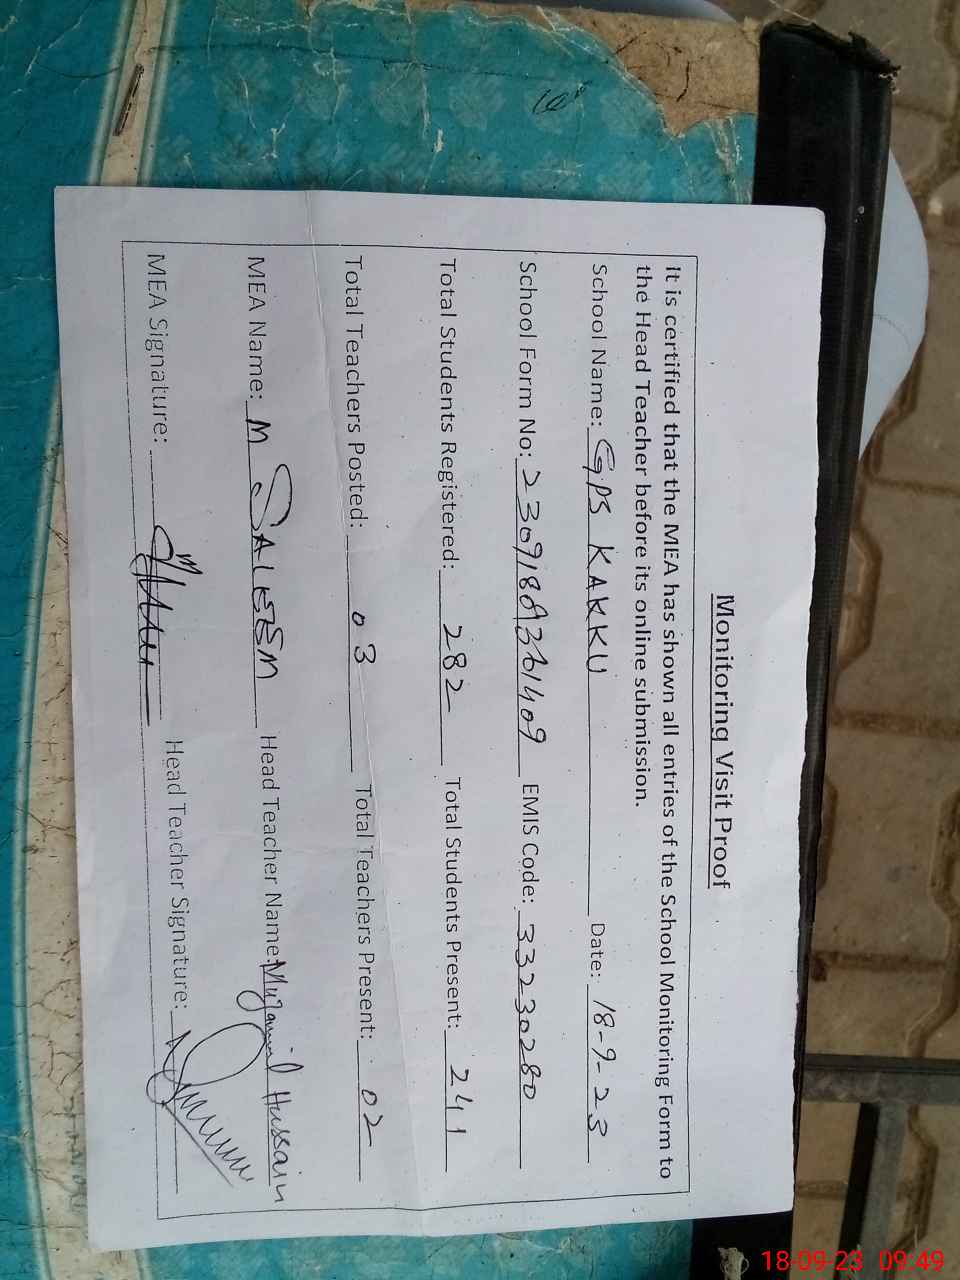 Monitoring Visit Proof
It is certified that the MEA has shown all entries of the School Monitoring Form to
the Head Teacher before its online submission.
School Name: GPS KAKKU Date: 18-9-23
School Form No: EMIS Code: 33230280
Total Students Registered: 282 Total Students Present: 241
Total Teachers Posted: 03 Total Teachers Present: 02
MEA Name: M SALEEM Head Teacher Name: Muzammil Hussain
MEA Signature: Head Teacher Signature:
18-09-23 09:49